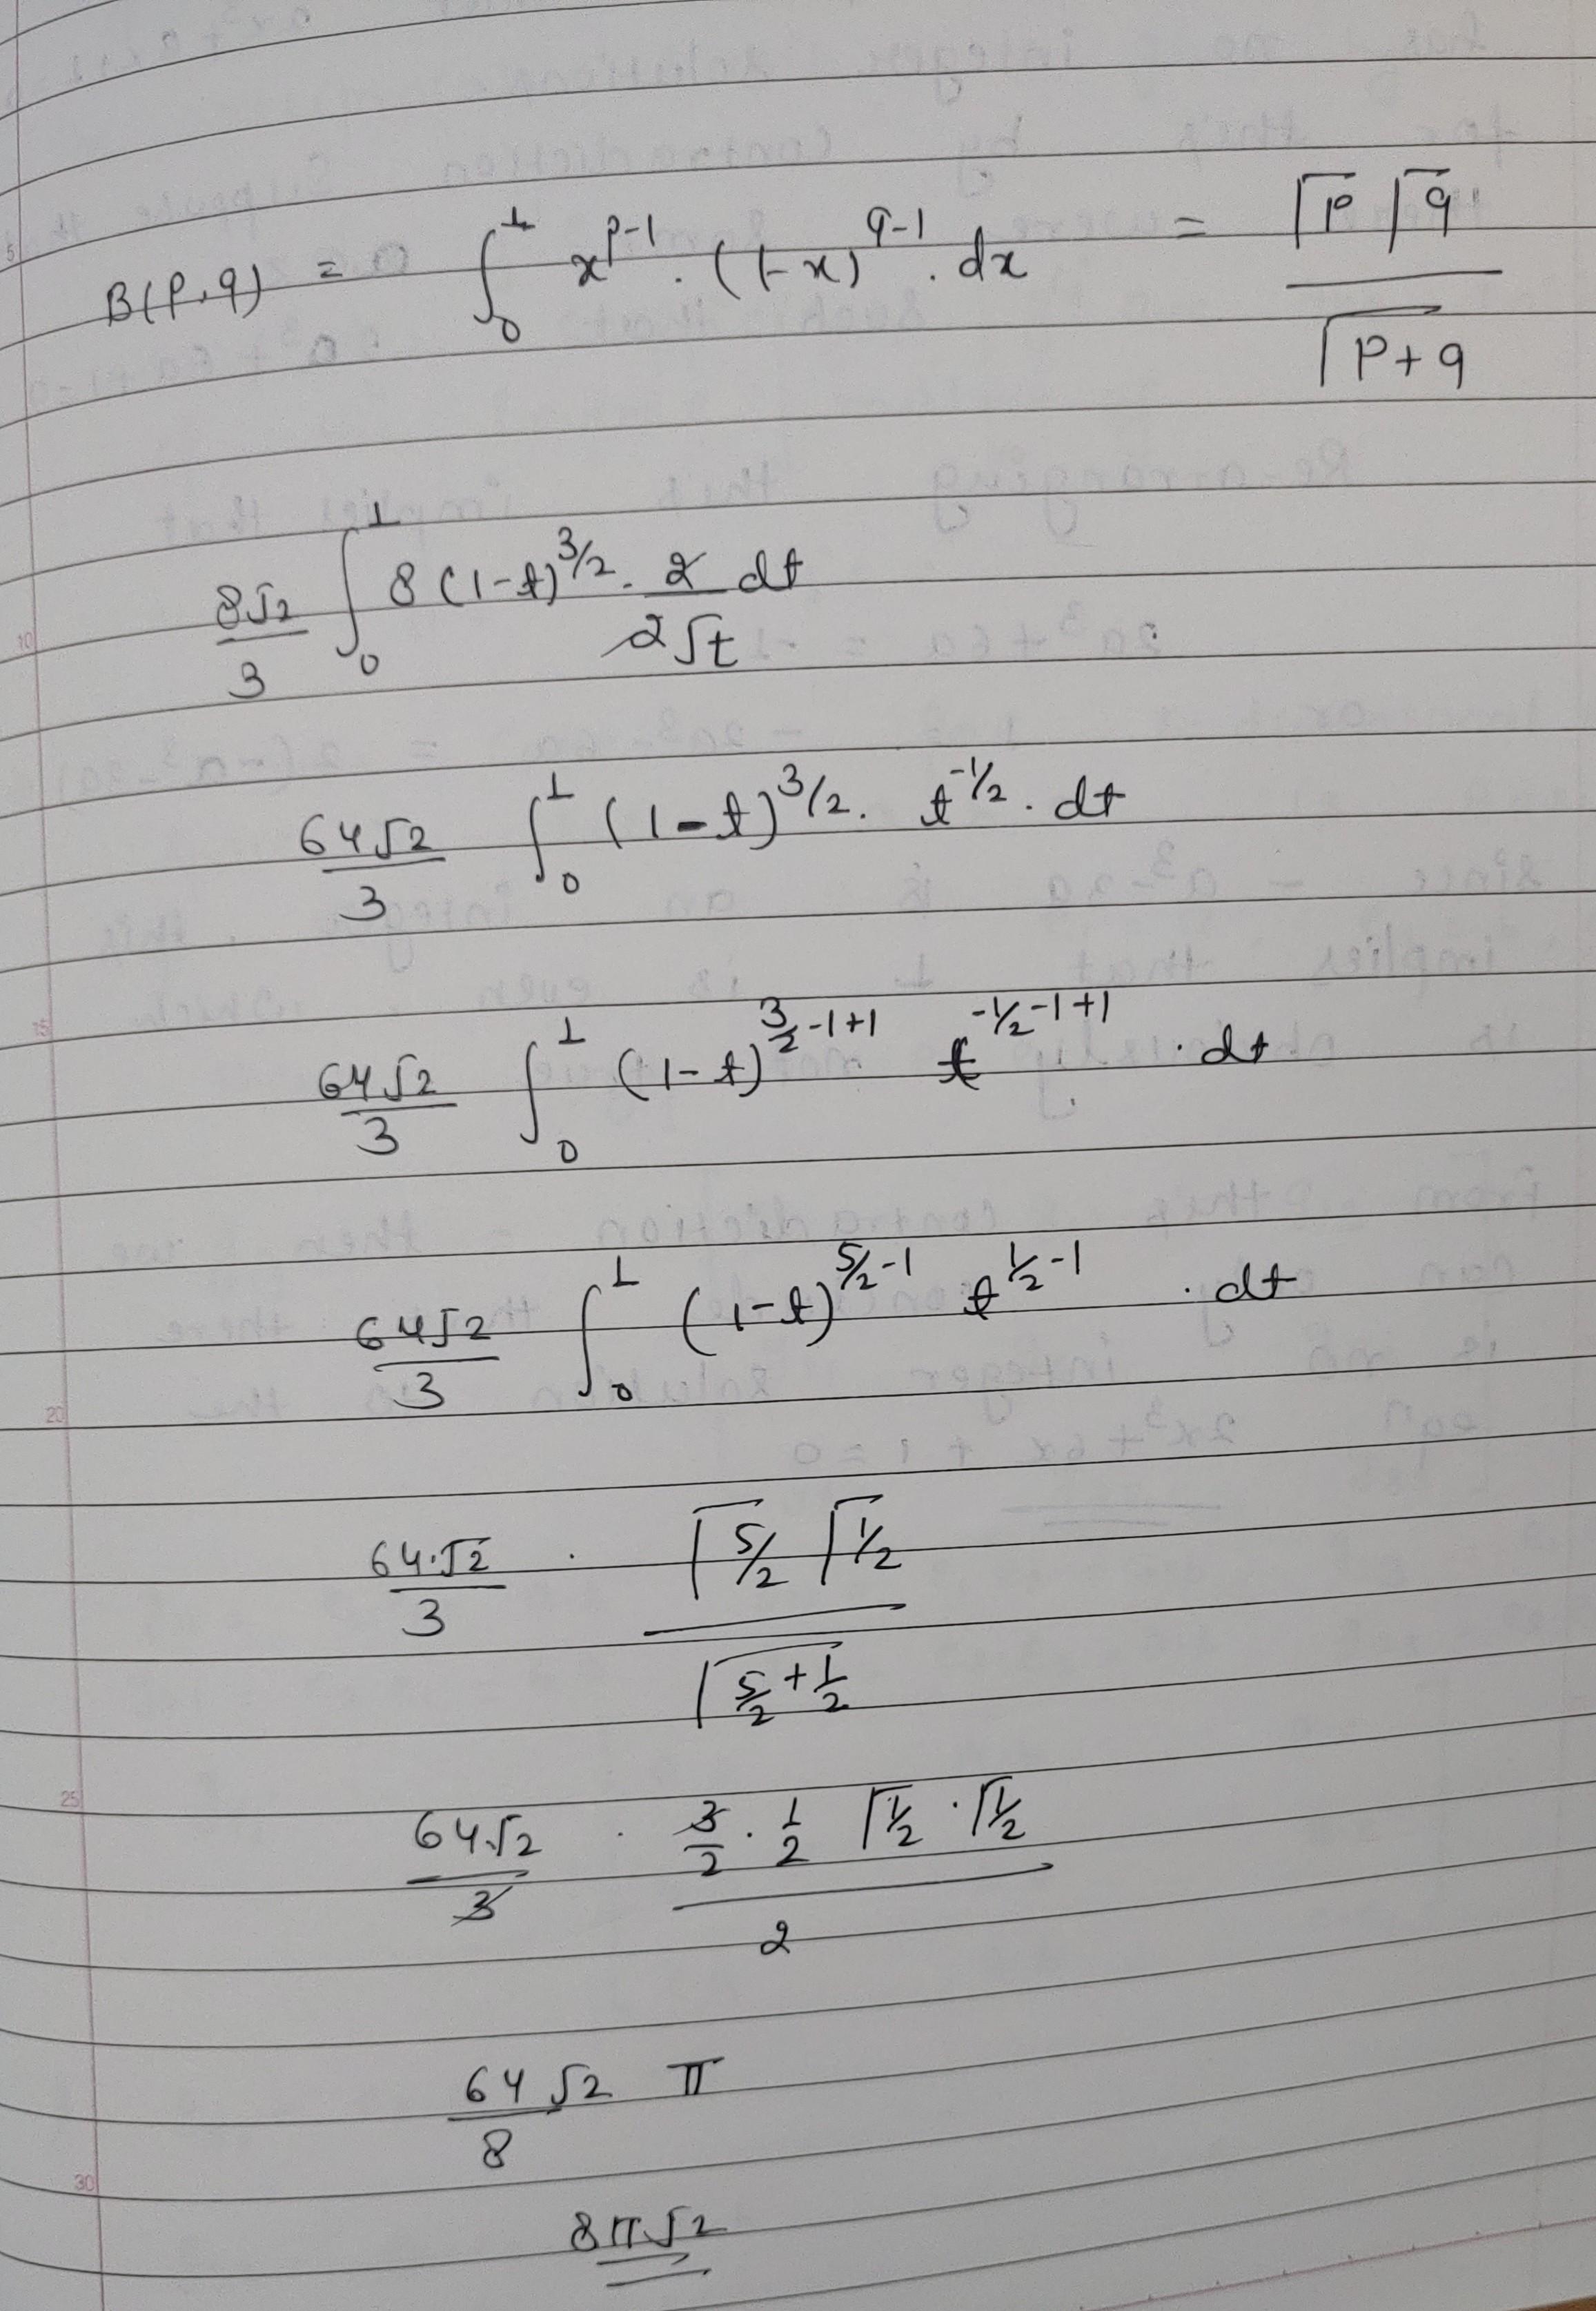 B(P,q) = ∫₀¹ x^(p-1) . (1-x)^(q-1) . dx = (Γp Γq) / (Γp+q)
8√2/3 ∫₀¹ 8 (1-t)^(3/2) . 2/(2√t) dt
64√2/3 ∫₀¹ (1-t)^(3/2) . t^(-1/2) . dt
64√2/3 ∫₀¹ (1-t)^(3/2 -1+1) t^(-1/2 -1+1) . dt
64√2/3 ∫₀¹ (1-t)^(5/2 -1) t^(1/2 -1) . dt
64.√2/3 . (Γ5/2 Γ1/2) / (Γ5/2 + 1/2)
64√2/3 . (3/2 . 1/2 Γ1/2 . Γ1/2) / 2
64√2/8 π
8π√2
5
10
15
20
25
30